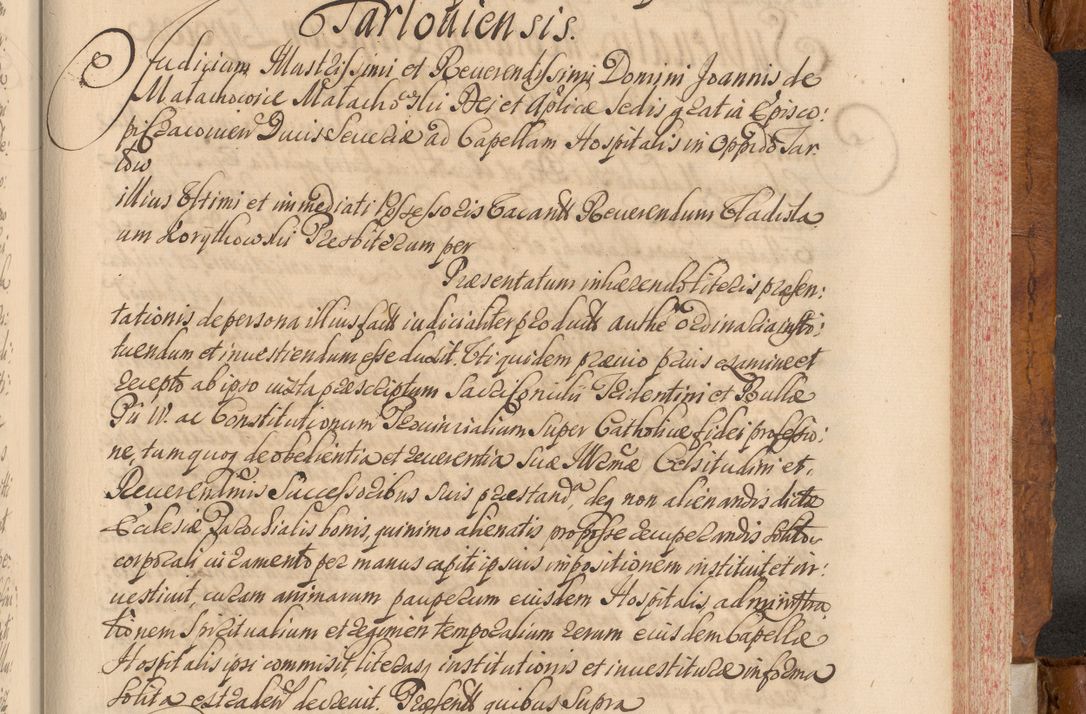 Tarloviensis.
Judicium Illustrissimi et Reverendissimi Domini Joannis de
Małachowice Małachowski Dei et Aplicæ Sedis gratia Episco:
pi Cracovien Ducis Severiæ ad Capellam Hospitalis in Oppido Tar
low
illius Ultimi et immediati Possessoris vacantt Reverendum Vladisla
um Korytkowski Presbiterum per
Præsentatum inhærendo literis præsen:
tationis de persona illius factt iudicialiter productt authe ordinaria insti:
tuendum et investiendum esse duxit. Uti quidem prævio prius examine et
recepto ab ipso iuxta præscriptum Sacri Concilii Tridentini et Bullæ
Pii IV. ac Constitutionum Provincialium super Catholicæ fidei professio:
ne, tum quoq de obedientia et reverentia suæ Illmæ Celsitudini et
Reverendmis Successoribus suis præstanda, deq non alienandis dictæ
Ecclesiæ Parochialis bonis, quinimo alienatis pro posse recuperandis solito
corporali iuramento per manus capiti ipsius impositionem instituit et in:
vestivit, curam animarum pauperum eiusdem Hospitalis, administra
tionem Spiritualium et regimen temporalium rerum eiusdem Capellæ
Hospitalis ipsi commisit, literasq institutionis et investituræ in forma
solita extraden decrevit. Præsentt quibus supra